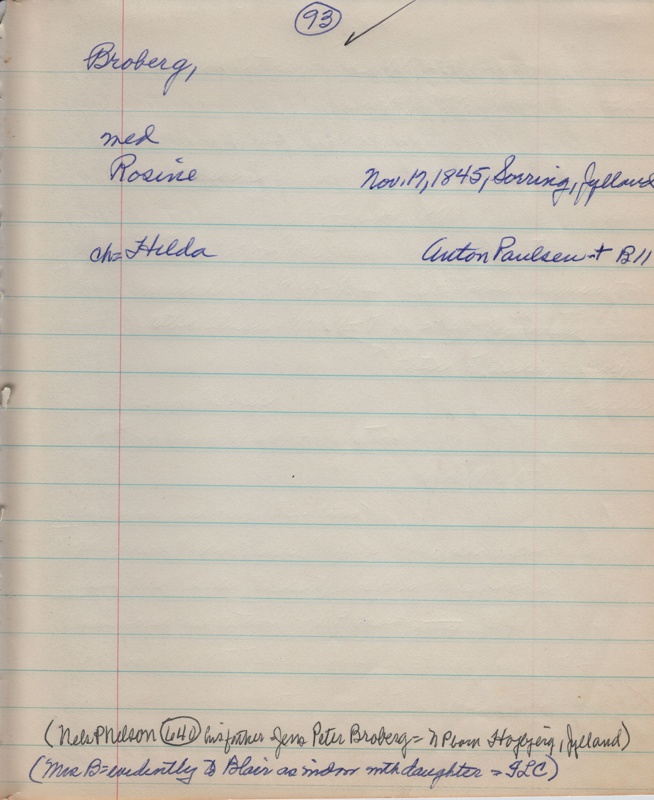 93
Broberg,
med
Rosine Nov. 17, 1845, Sorring, Jylland
ch= Hilda Anton Paulsen + B11
(Nels P Nelson 640 his father Jens Peter Broberg = N P born Jylland)
(Mrs B= evidently to Blair as widow with daughter =)